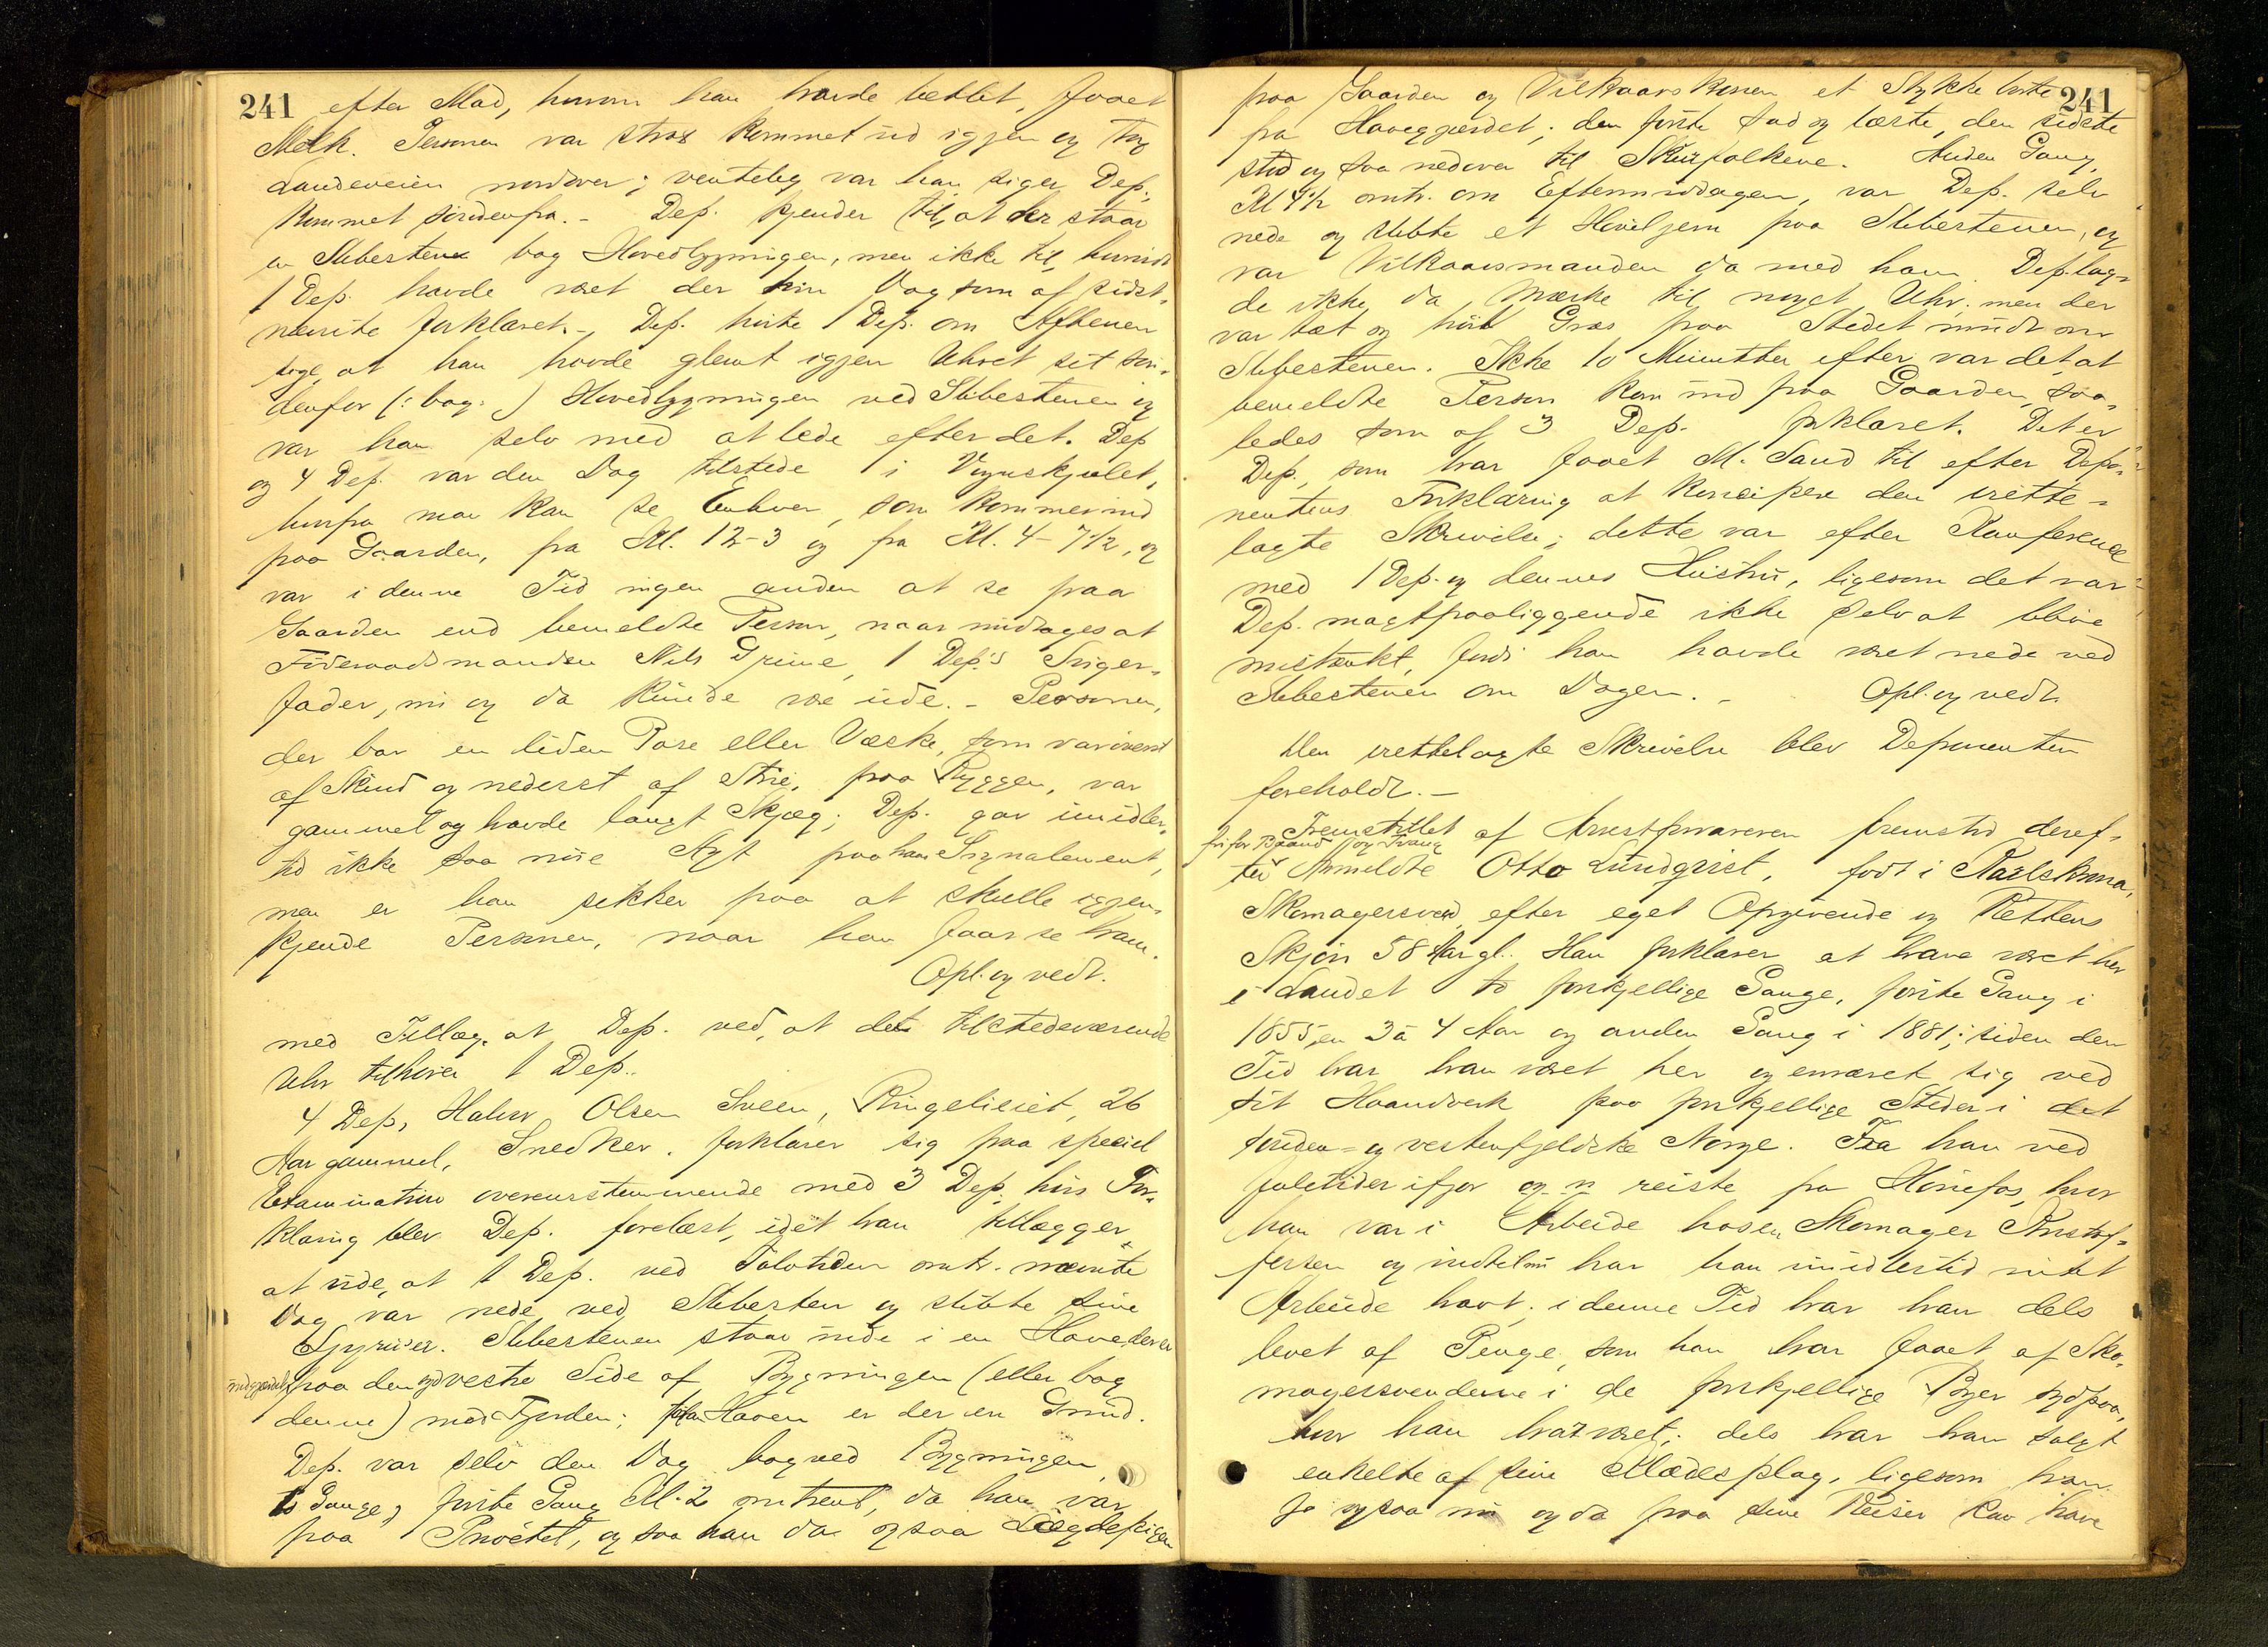 241 efter Mad, hvorom han havde bettlet, faaet
Melk. Personen var strax kommet ud igjen og tog
Landeveien nordover; ventelig var han, siger Dep.,
kommet søndenfra. - Dep. kjender til, at der staar
en Slibesten bag Hovedbygningen, men ikke til, hvorvidt
1 Dep. havde været der hin Dag som af sidst-
nævnte forklaret. - Dep. hørte 1 Dep. om Aftenen
sige, at han havde glemt igjen Uhret sit søn-
denfor (: bag :) Hovedbygningen ved Slibestenen og
var han selv med at lede efter det. Dep.
og 4 Dep. var den Dag tilstede i Vognskjulet,
hvorfra man kan se Enhver, som kommer ind
paa Gaarden, fra Kl. 12-3 og fra Kl. 4-7½, og
var i denne Tid ingen anden at se paa
Gaarden end bemeldte Person, naar undtages at
Føderaadsmanden Nils Grine, 1 Dep.'s Sviger-
fader, nu og da kunde være ude. - Personen,
der bar en liden Pose eller Væske, som var øverst
af Skind og nederst af Strie, paa Ryggen, var
gammel og havde langt Skjæg; Dep. gav imidler-
tid ikke saa nøie Agt paa hans Signalement,
men er han sikker paa at skulle igjen-
kjende Personen, naar han faar se ham.
Opl. og vedt.
med Tillæg, at Dep. ved, at det tilstedeværende
Uhr tilhører 1 Dep..
4 Dep, Halvor Olsen Sveen, Ringelieiet, 26
Aar gammel, Snedker, forklarer sig paa speciel
Examination overensstemmende med 3 Dep. hvis For-
klaring blev Dep. forelæst, idet han tillægger
at vide, at 1 Dep. ved Tolvtiden omtr. nævnte
Dag var nede ved Slibesten og slibte sine
Ljyriver. Slibestenen staar inde i en Have, der er
indgjerdet paa den sydvestre Side af Bygningen (eller bag
denne) mod Fjorden; fra Haven er der en Grind.
Dep. var selv den Dag bagved Bygningen
to Gange, første Gang Kl. 2 omtrent, da han var
paa Privétet, og saa han da ogsaa Lægdepigen
241
paa Gaarden og Vilkaarskonen et Stykke borte
fra Havegjærdet; den første sad og læste, den sidste
stod og saa nedover til Skurfolkene. Anden Gang,
Kl 4½ omtr. om Eftermiddagen, var Dep. selv
nede og slibte et Høviljern paa Slibestenen, og
var Vilkaarsmanden da med ham. Dep. lag-
de ikke da Mærke til noget Uhr, men der
var tæt og høit Græs paa Stedet rundt om
Slibestenen. Ikke 10 Minutter efter var det, at
bemeldte Person kom ind paa Gaarden, saa-
ledes som af 3 Dep. forklaret. Det er
Dep., som har faaet M. Sand til efter Depo-
nentens Forklaring at koncipere den irette-
lagte Skrivelse; dette var efter Konference
med 1 Dep. og dennes Hustru, ligesom det var
Dep. magtpaaliggende ikke selv at blive
mistænkt, fordi han havde været nede ved
Slibestenen om Dagen. - Opl. og vedt.
Den irettelagte Skrivelse blev Deponenten
foreholdt. -
Fremstillet af Arrestforvareren fremstod deref-
fri for Baand og Tvang
ter Anmeldte Otto Lundqvist, født i Karlskrona,
Skomagersvend, efter eget Opgivende og Rettens
Skjøn 58 Aar gl. Han forklarer at have været her
i Landet to forskjellige Gange, første Gang i
1855, en 3 à 4 Aar og anden Gang i 1881; siden den
Tid har han været her og ernæret sig ved
sit Haandverk paa forskjellige Steder i det
sønden- og vestenfjeldske Norge. Fra han ved
Juletider ifjor reiste fra Hønefos, hvor
han var i Arbeide hos en Skomager Kristof-
fersen og indtil nu har han imidlertid intet
Arbeide havt; i denne Tid har han dels
levet af Penge, som han har faaet af Sko-
magersvendene i de forskjellige Byer sydpaa,
hvor han har været; dels har han solgt
enkelte af sine Klædesplag, ligesom han
jo ogsaa nu og da paa sine Reiser kan have